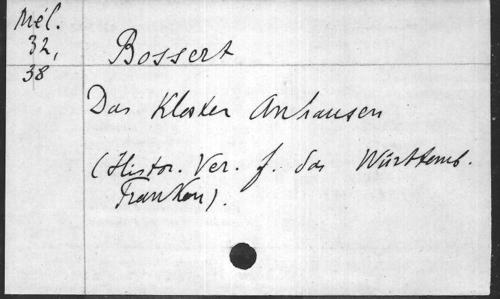 Mél.
32,
38
Bossert
Das Kloster Anhausen
(Histor. Ver. f. das Württemb.
Franken).